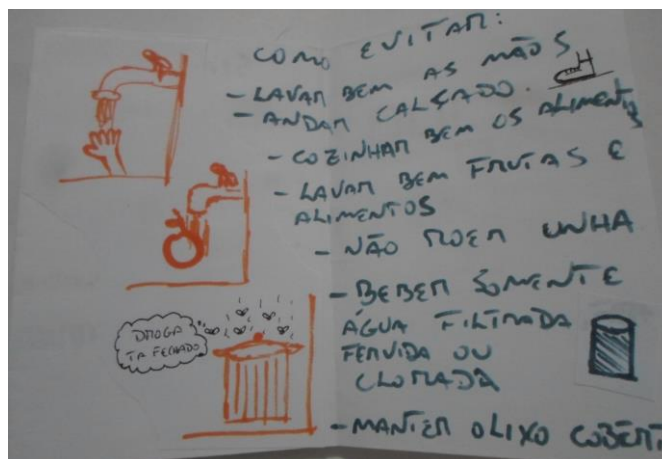 COMO EVITAR:
- LAVAR BEM AS MÃOS
- ANDAR CALÇADO.
- COZINHAR BEM OS ALIMENTOS
- LAVAR BEM FRUTAS E
ALIMENTOS
- NÃO ROER UNHA
- BEBER SOMENTE
ÁGUA FILTRADA
FERVIDA OU
CLORADA
- MANTER O LIXO COBERT
DROGA
TA FECHADO